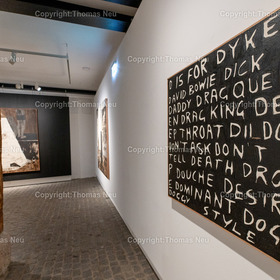 Copyright:Thomas Neu Copyright:Thomas Neu
D IS FOR DYKE
DAVID BOWIE DICK
DADDY DRAG QUE
EN DRAG KING DE
EP THROAT DILDO
DON'T ASK DON'T
TELL DEATH DRO
P DOUCHE DESIR
E DOMINANT DOG
DOGGY STYLE
Copyright:Thomas Neu Copyright:Thomas Neu
Copyright:Thomas Neu Copyright:Thomas Neu
Copyright:Thomas Neu Copyright:Thomas Neu
Copyright:Thomas Neu Copyright:Thomas Neu